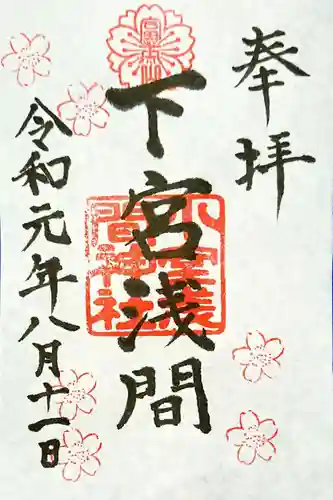 奉拝
富士山
下宮浅間
令和元年八月十一日